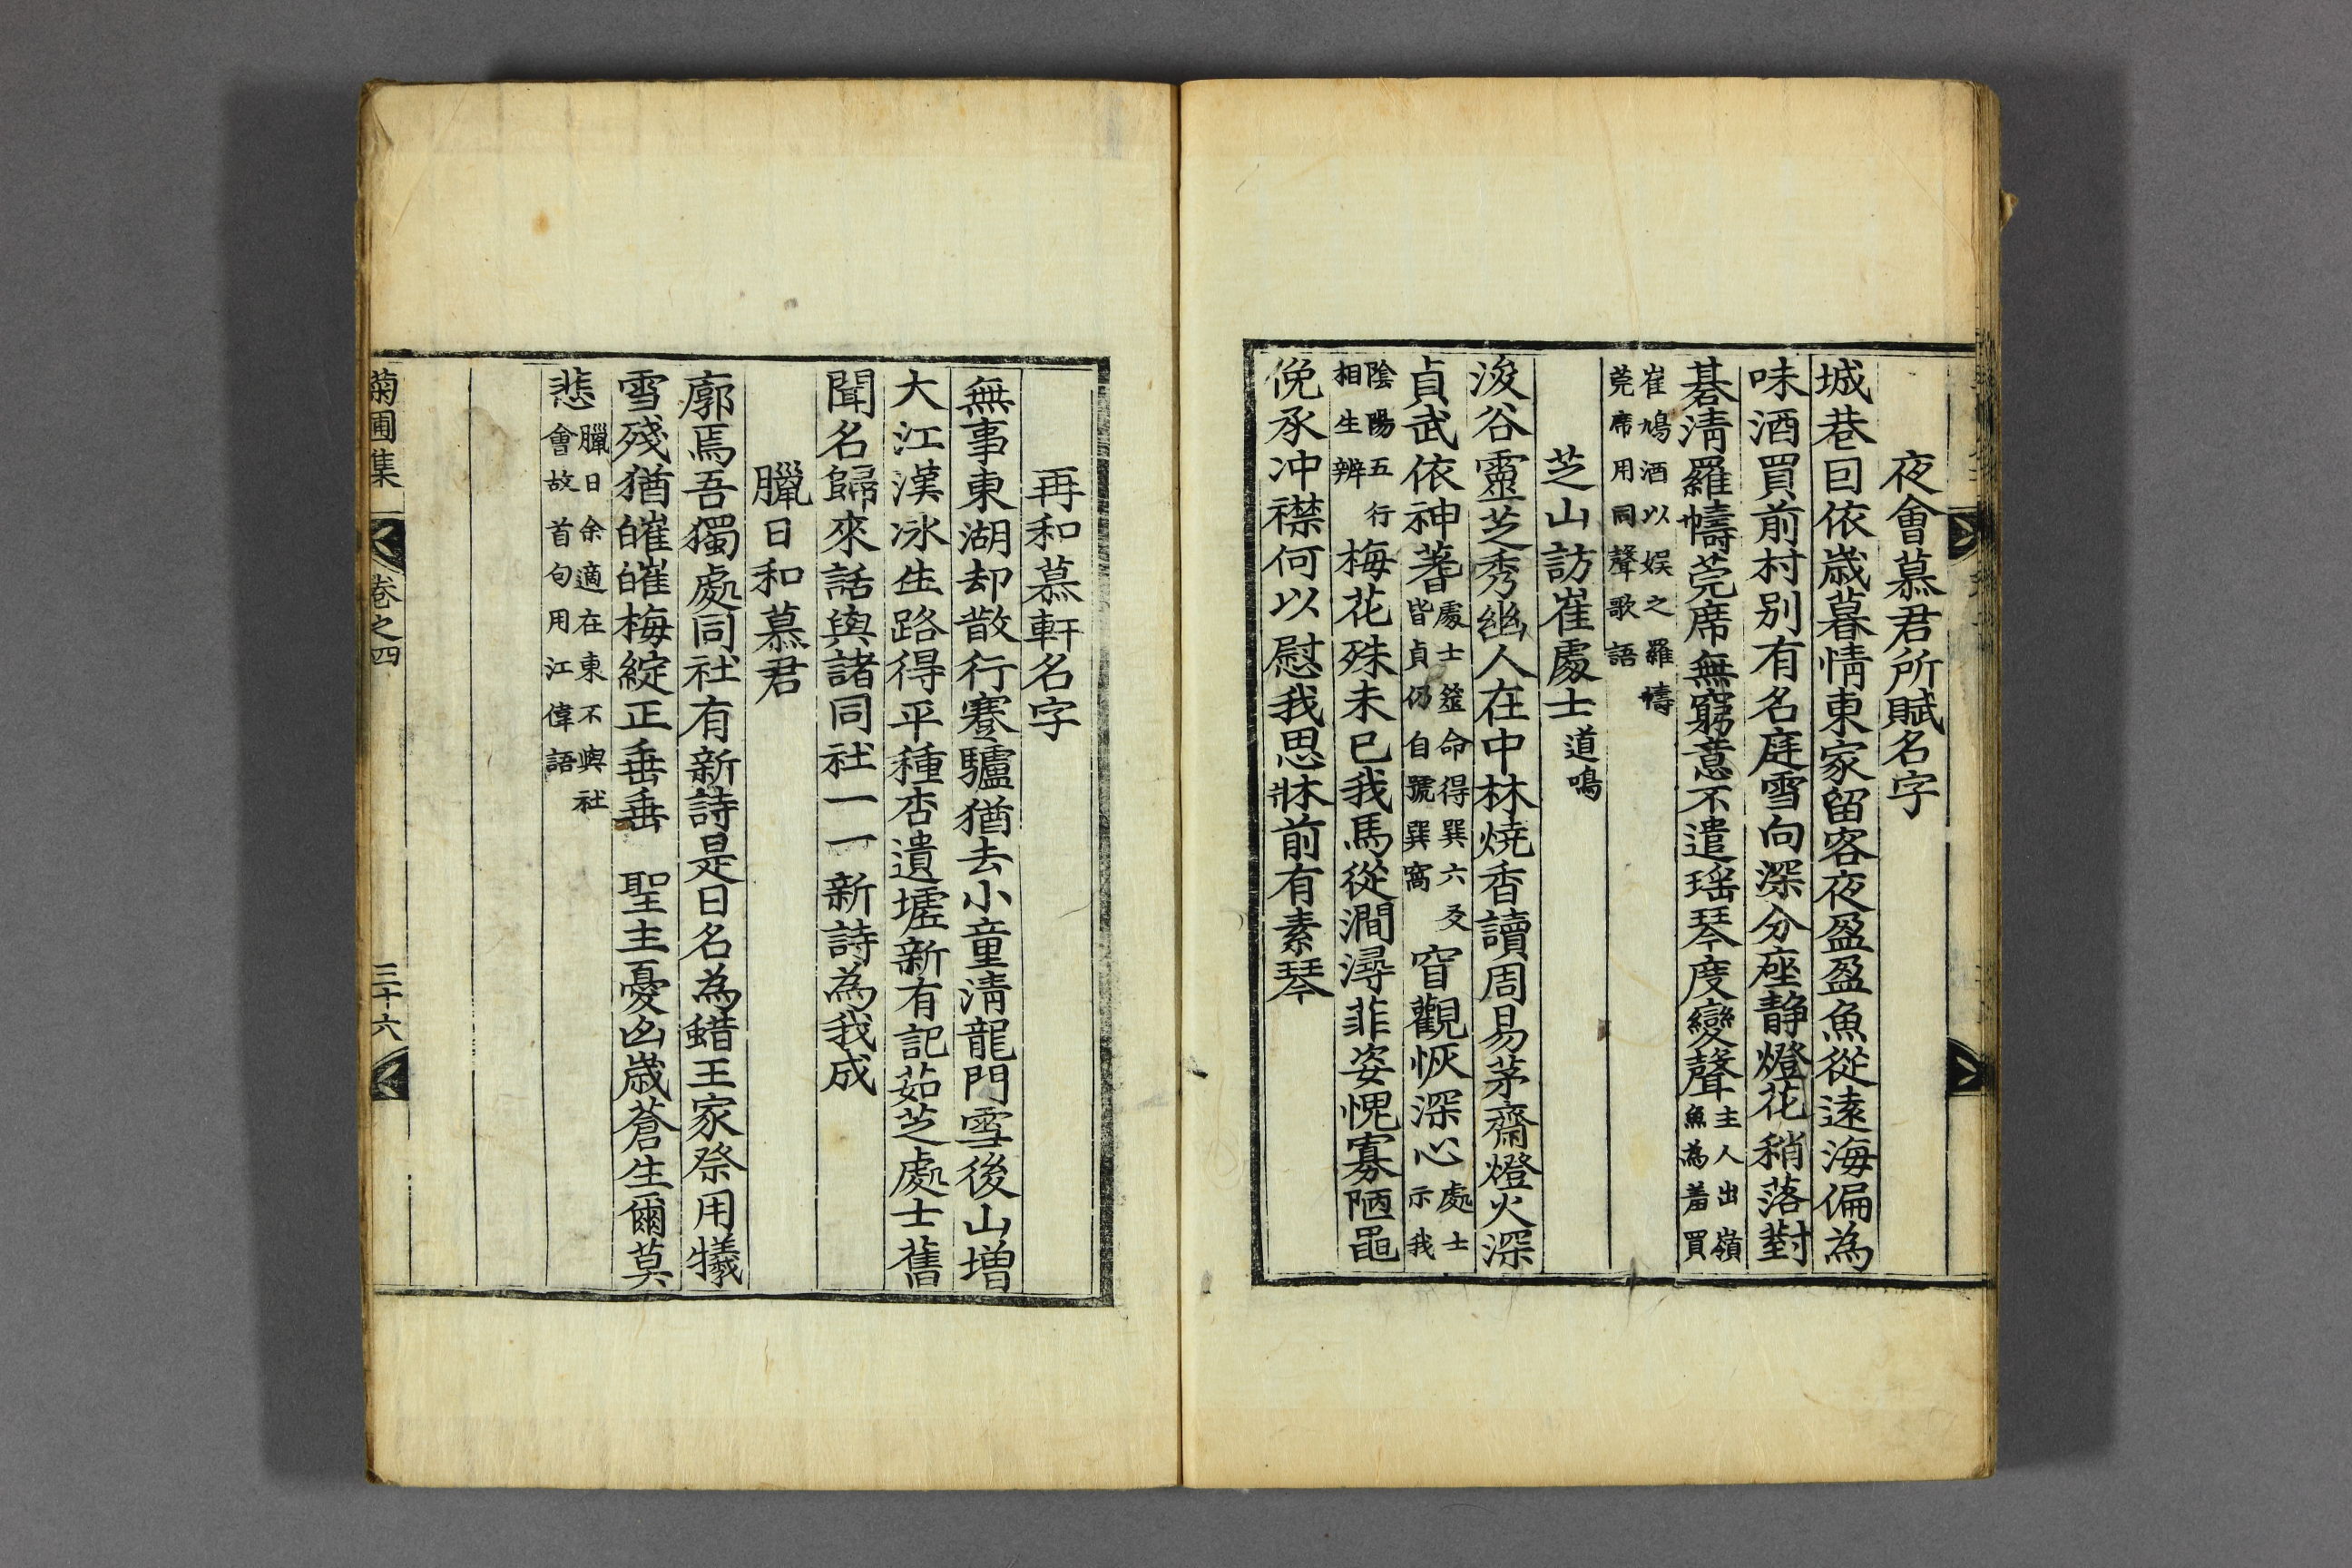 夜會慕君所賦名字
城巷回依歲暮情東家留客夜盈盈魚從遠海偏為
味酒買前村別有名庭雪向深分座静燈花稍落對
碁淸羅幬莞席無窮意不遣瑶琴度變聲主人出嶺魚為羞買
崔鳩酒以娛之羅幬莞席用同聲歌語
芝山訪崔處士道鳴
浚谷靈芝秀幽人在中林燒香讀周易茅齋燈火深
貞武依神蓍處士筮命得巽六爻皆貞仍自號巽窩窅觀恢深心處士示我
陰陽五行相生辨梅花殊未已我馬從澗潯菲姿愧寡陋黽
俛承冲襟何以慰我思牀前有素琴
再和慕軒名字
無事東湖却散行蹇驢猶去小童淸龍門雪後山增
大江漢冰生路得平種杏遺墟新有記茹芝處士舊
聞名歸來話與諸同社一一新詩為我成
臘日和慕君
廓焉吾獨處同社有新詩是日名為蜡王家祭用犧
雪殘猶皠皠梅綻正垂垂 聖主憂凶歲蒼生爾莫
悲臘日余適在東不與社會故首句用江偉語
菊圃集 卷之四 三十六